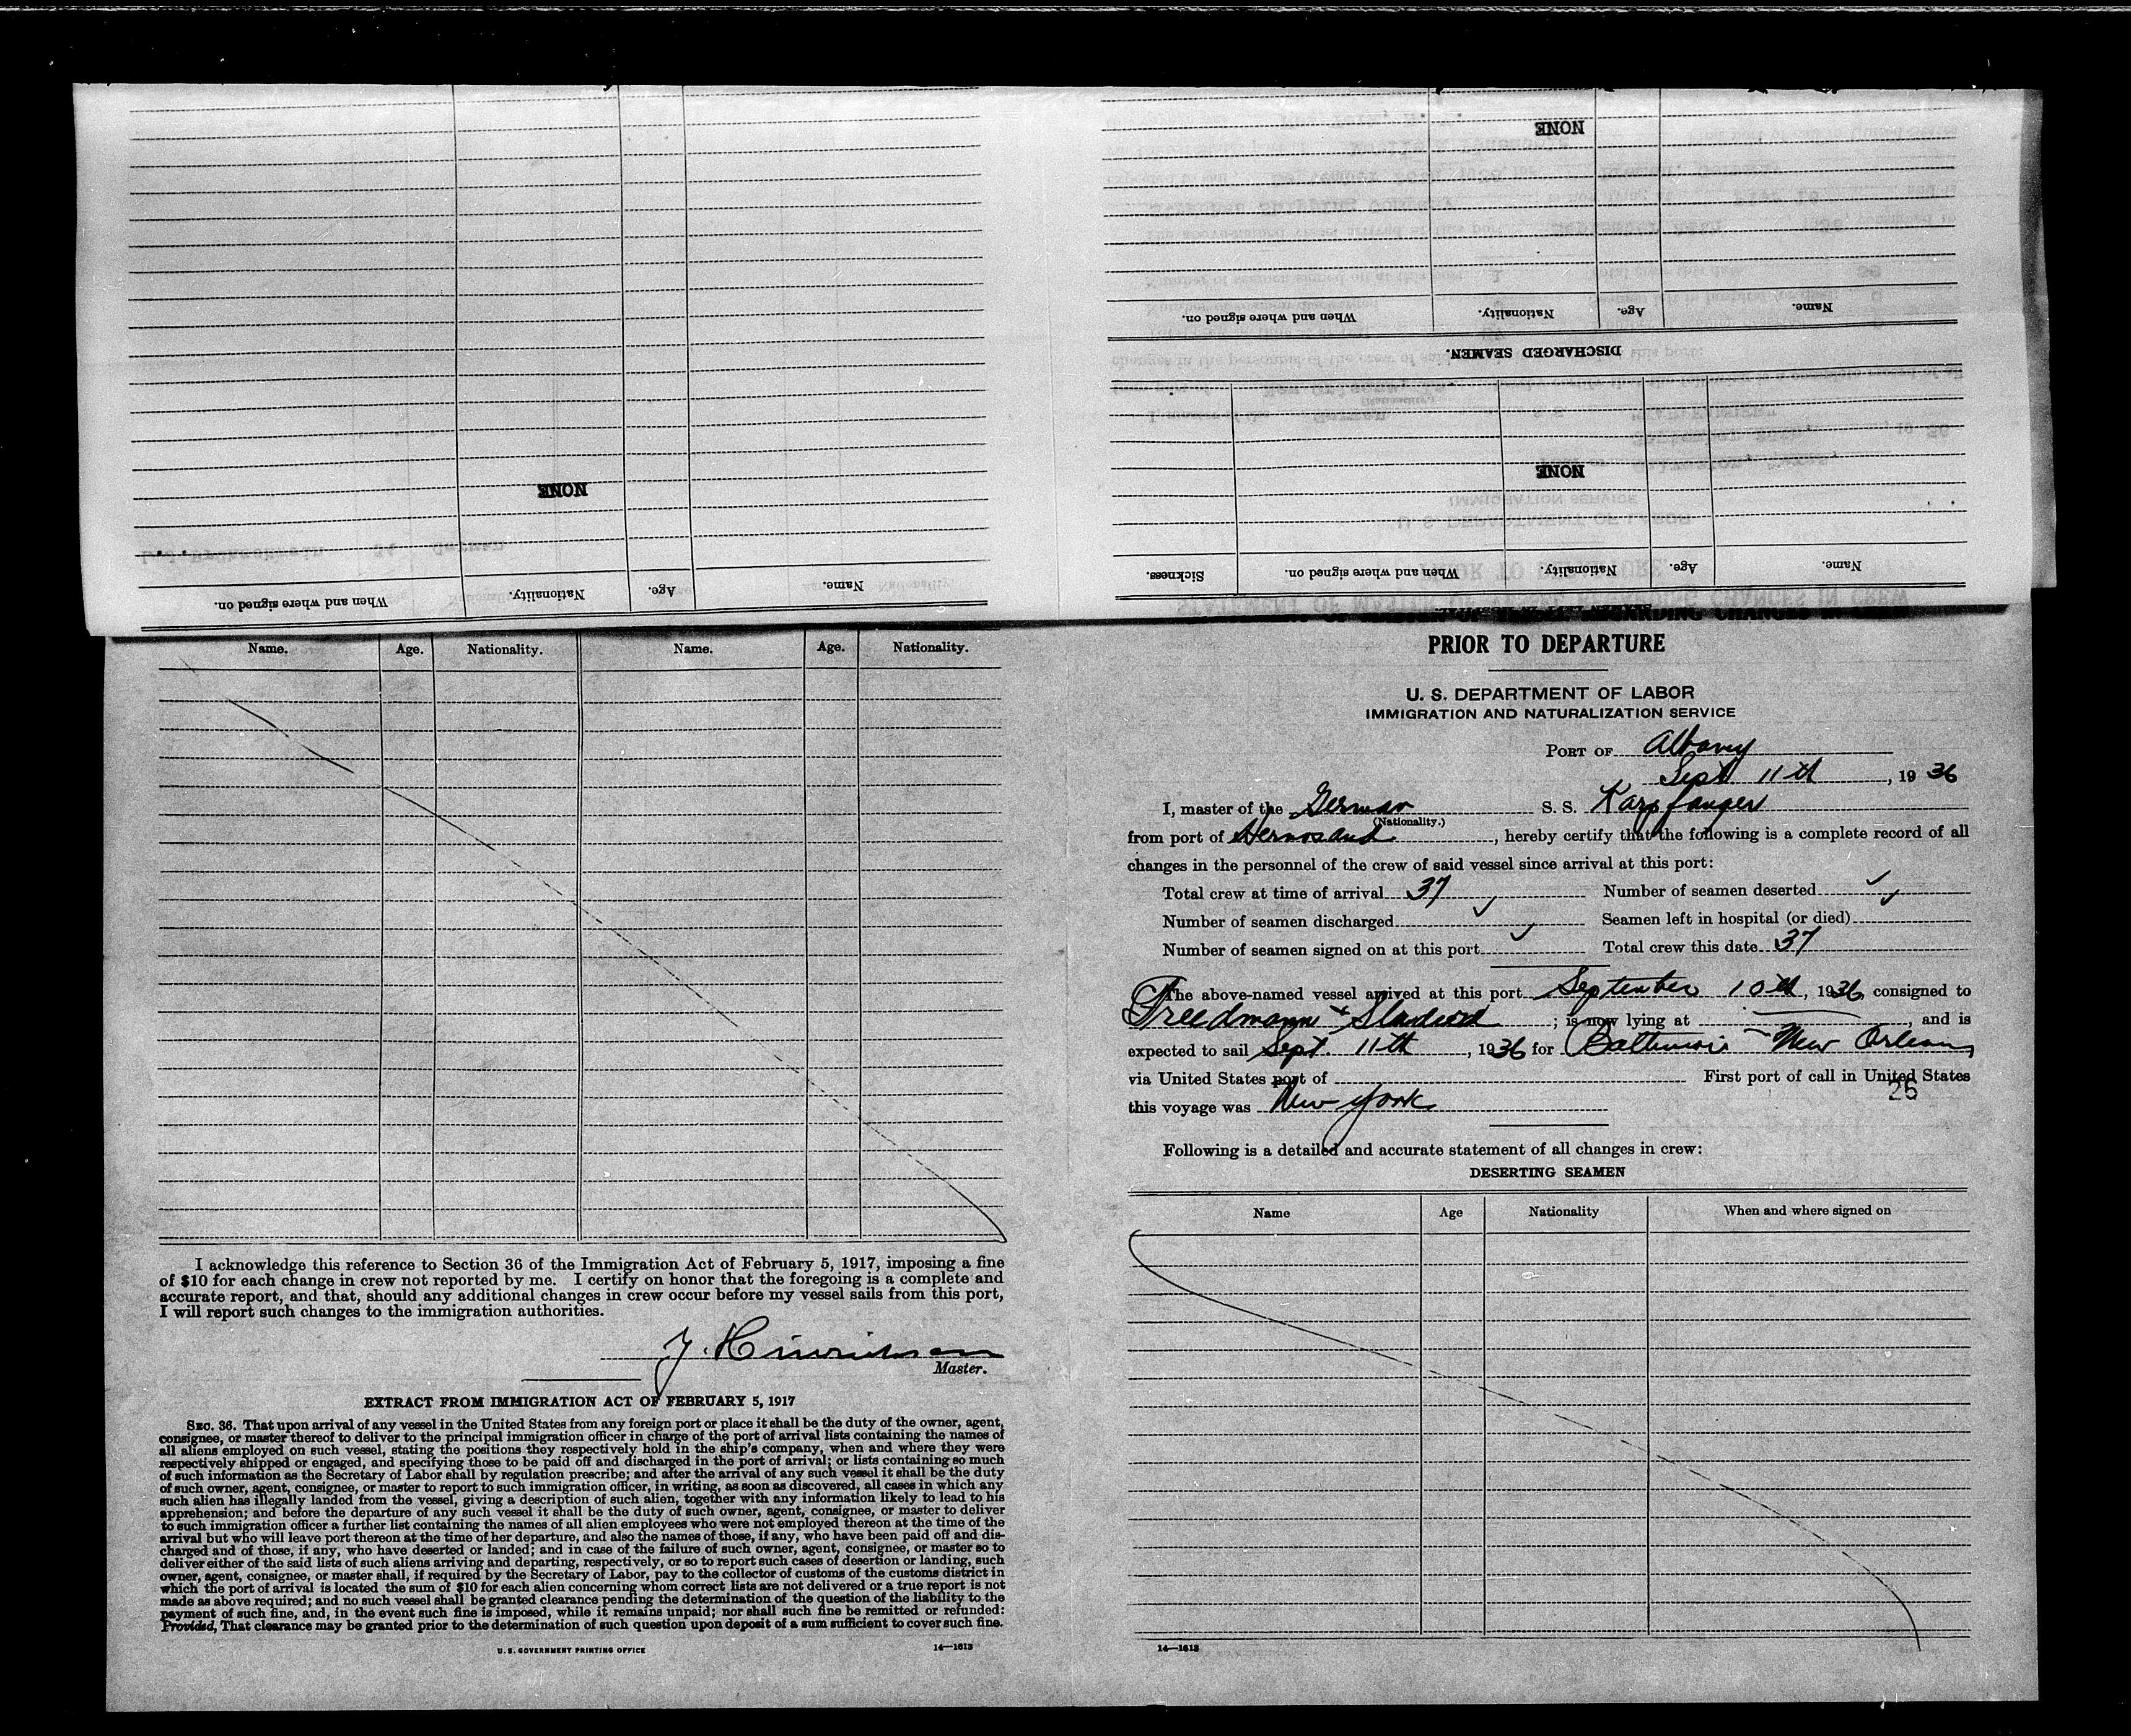 NONE
When and where signed on.
Nationality.
Age.
Name.
NONE
When and where signed on.
Nationality.
Age.
Name.
DISCHARGED SEAMEN.
NONE
Sickness.
When and where signed on.
Nationality.
Age.
Name.
Name.
Age.
Nationality.
Name.
Age.
Nationality.
I acknowledge this reference to Section 36 of the Immigration Act of February 5, 1917, imposing a fine
of $10 for each change in crew not reported by me. I certify on honor that the foregoing is a complete and
accurate report, and that, should any additional changes in crew occur before my vessel sails from this port,
I will report such changes to the immigration authorities.
J. Hinrichsen
Master.
EXTRACT FROM IMMIGRATION ACT OF FEBRUARY 5, 1917
SEC. 36. That upon arrival of any vessel in the United States from any foreign port or place it shall be the duty of the owner, agent,
consignee, or master thereof to deliver to the principal immigration officer in charge of the port of arrival lists containing the names of
all aliens employed on such vessel, stating the positions they respectively hold in the ship's company, when and where they were
respectively shipped or engaged, and specifying those to be paid off and discharged in the port of arrival; or lists containing so much
of such information as the Secretary of Labor shall by regulation prescribe; and after the arrival of any such vessel it shall be the duty
of such owner, agent, consignee, or master to report to such immigration officer, in writing, as soon as discovered, all cases in which any
such alien has illegally landed from the vessel, giving a description of such alien, together with any information likely to lead to his
apprehension; and before the departure of any such vessel it shall be the duty of such owner, agent, consignee, or master to deliver
to such immigration officer a further list containing the names of all alien employees who were not employed thereon at the time of the
arrival but who will leave port thereon at the time of her departure, and also the names of those, if any, who have been paid off and dis-
charged and of those, if any, who have deserted or landed; and in case of the failure of such owner, agent, consignee, or master so to
deliver either of the said lists of such aliens arriving and departing, respectively, or so to report such cases of desertion or landing, such
owner, agent, consignee, or master shall, if required by the Secretary of Labor, pay to the collector of customs of the customs district in
which the port of arrival is located the sum of $10 for each alien concerning whom correct lists are not delivered or a true report is not
made as above required; and no such vessel shall be granted clearance pending the determination of the question of the liability to the
payment of such fine, and, in the event such fine is imposed, while it remains unpaid; nor shall such fine be remitted or refunded:
Provided, That clearance may be granted prior to the determination of such question upon deposit of a sum sufficient to cover such fine.
U. S. GOVERNMENT PRINTING OFFICE 14—1613
PRIOR TO DEPARTURE
U. S. DEPARTMENT OF LABOR
IMMIGRATION AND NATURALIZATION SERVICE
PORT OF Albany
Sept 11th, 1936
I, master of the German S. S. Karpfanger
(Nationality.)
from port of Hernosand, hereby certify that the following is a complete record of all
changes in the personnel of the crew of said vessel since arrival at this port:
Total crew at time of arrival 37 Number of seamen deserted ✓
Number of seamen discharged ✓ Seamen left in hospital (or died) ✓
Number of seamen signed on at this port ✓ Total crew this date 37
The above-named vessel arrived at this port September 10th, 1936, consigned to
; is now lying at , and is
expected to sail Sept. 11th, 1936 for Baltimore - New Orleans
via United States port of First port of call in United States
25
this voyage was New York
Following is a detailed and accurate statement of all changes in crew:
DESERTING SEAMEN
Name
Age
Nationality
When and where signed on
14—1613